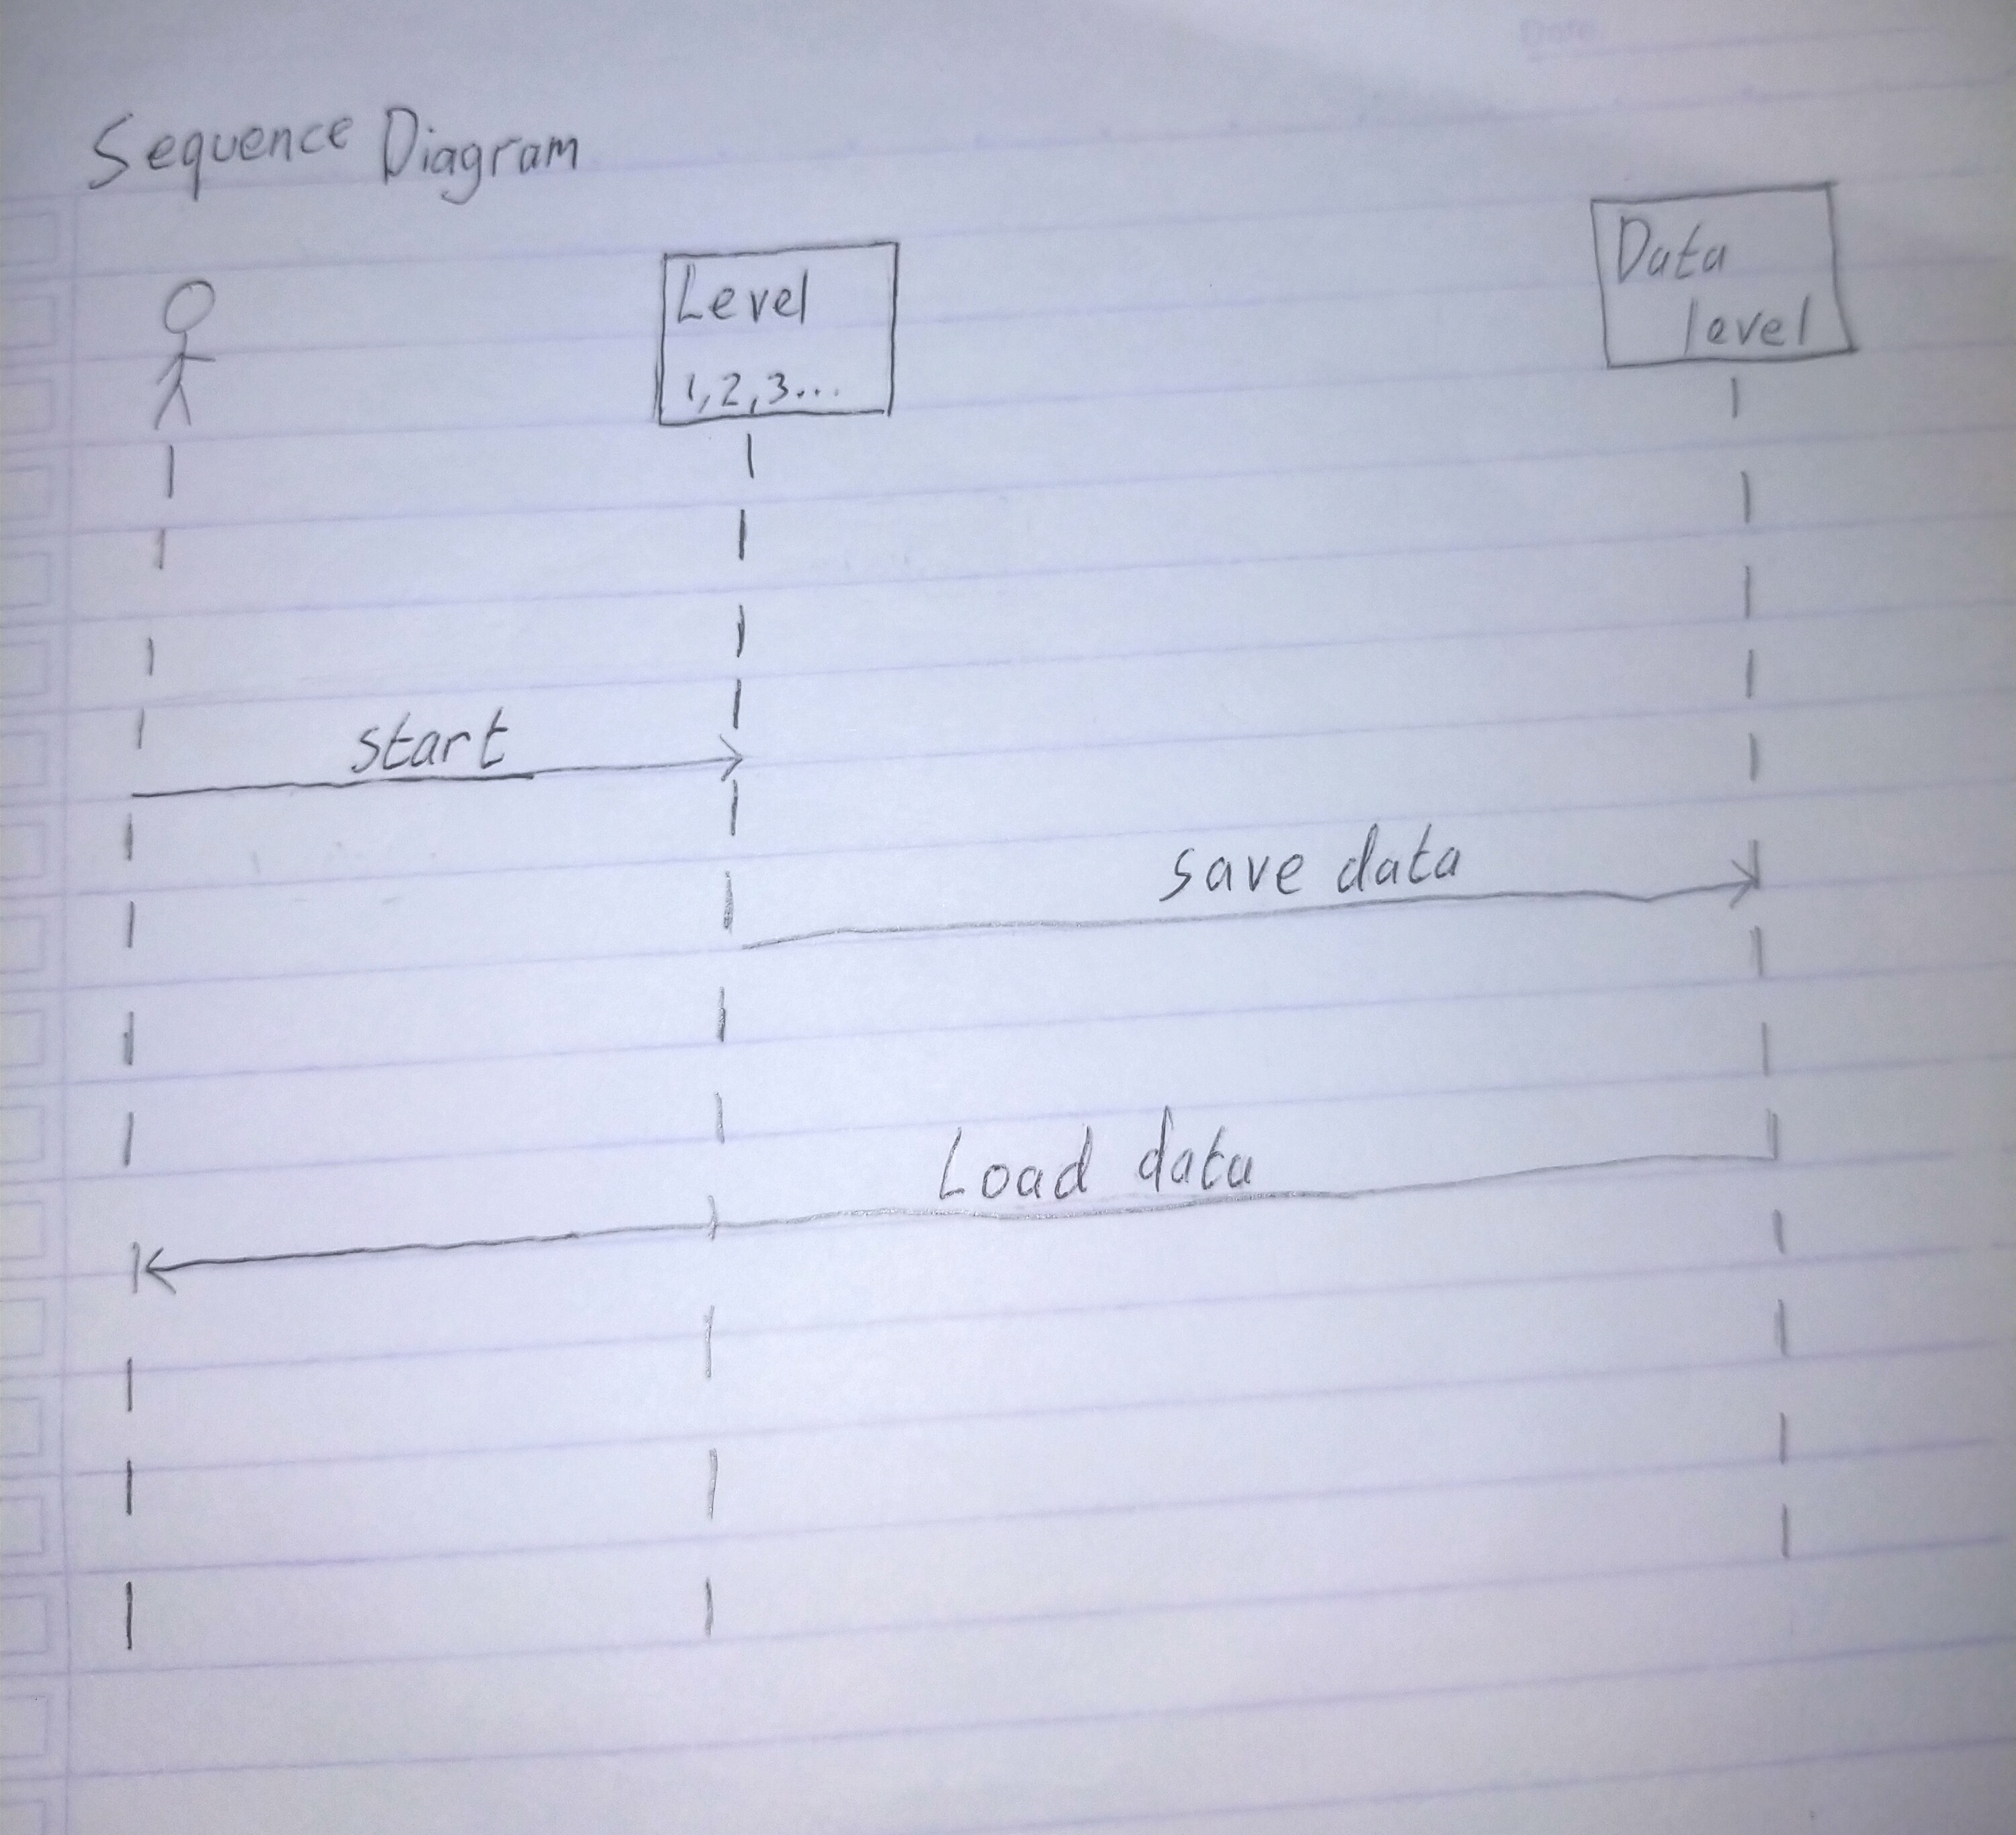 Date
Sequence Diagram
Level
1,2,3...
Data
level
start
save data
Load data